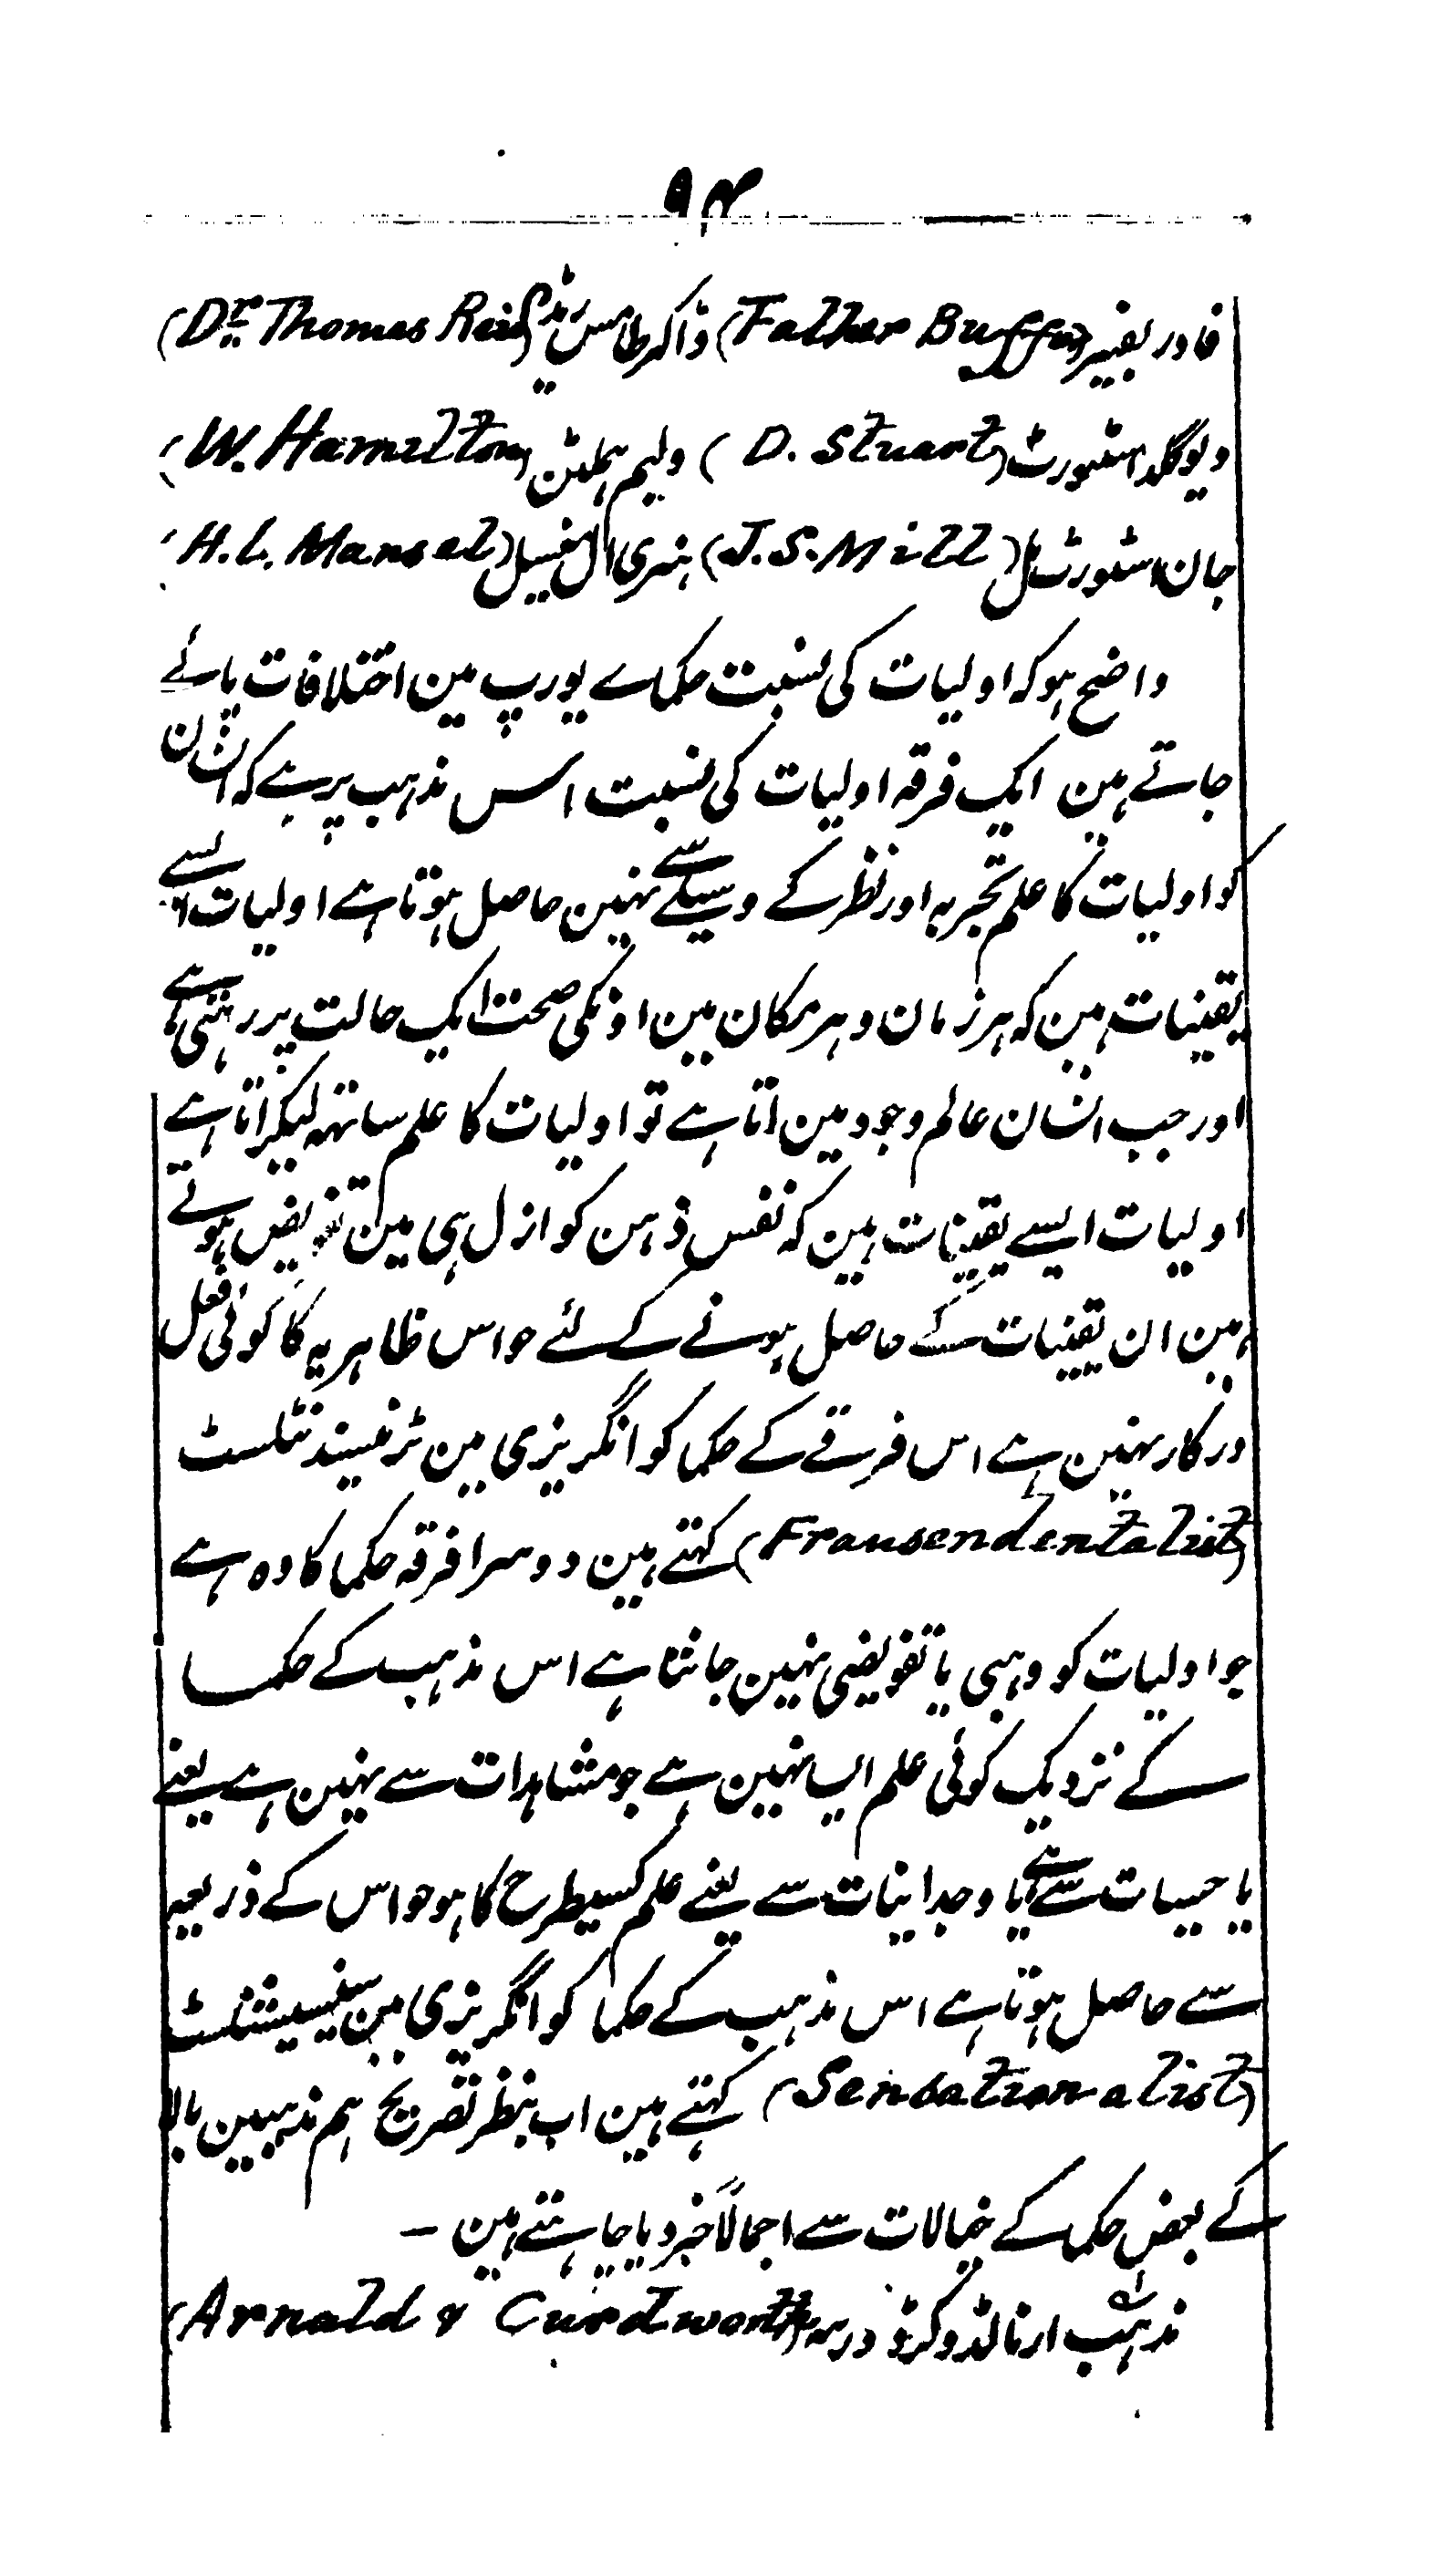 ۹۴
فادر بفیر (Father Buffer) ڈاکٹر طامس ریڈ (Dr Thomas Reid)
ڈیوگلڈ اسٹورٹ (D. Stuart) ولیم ہملٹن (W. Hamilton)
جان اسٹورٹ مل (J.S. Mill) ہنری ال منسیل (H.L. Mansel)
واضح ہو کہ اولیات کی نسبت حکماے یورپ مین اختلافات پائے
جاتے ہین ایک فرقہ اولیات کی نسبت اس مذہب پر ہے کہ انسان
کو اولیات کا علم تجربہ اور نظر کے وسیلے سے نہین حاصل ہوتا ہے اولیات ایسے
یقینیات ہین کہ ہر زمان و ہر مکان مین اونکی صحت ایک حالت پر رہتی ہے
اور جب انسان عالم وجود مین اتا ہے تو اولیات کا علم ساتھ لیکر اتا ہے
اولیات ایسے یقینیات ہین کہ نفس ذہن کو ازل ہی مین تفویض ہوتے
ہین ان یقینیات کے حاصل ہونے کے لئے حواس ظاہریہ کا کوئی فعل
درکار نہین ہے اس فرقے کے حکما کو انگریزی مین ٹرنسیندنٹلسٹ
(Frausendentalist) کہتے ہین دوسرا فرقہ حکما کا وہ ہے
جو اولیات کو وہبی یا تفویضی نہین جانتا ہے اس مذہب کے حکما
کے نزدیک کوئی علم ایسا نہین ہے جو مشاہدات سے نہین ہے یعنے
یا حسیات سے ہے یا وجدانیات سے یعنے علم کسیطرح کا ہو حواس کے ذریعہ
سے حاصل ہوتا ہے اس مذہب کے حکما کو انگریزی مین سنسیشنلسٹ
(Sensationalist) کہتے ہین اب بنظر تصریح ہم مذہبین بالا
کے بعض حکما کے خیالات سے اجمالاً خبر دیا چاہتے ہین ۔
مذہب ارنالڈ و کرڈ ورتھ (Arnald & Curdworth)